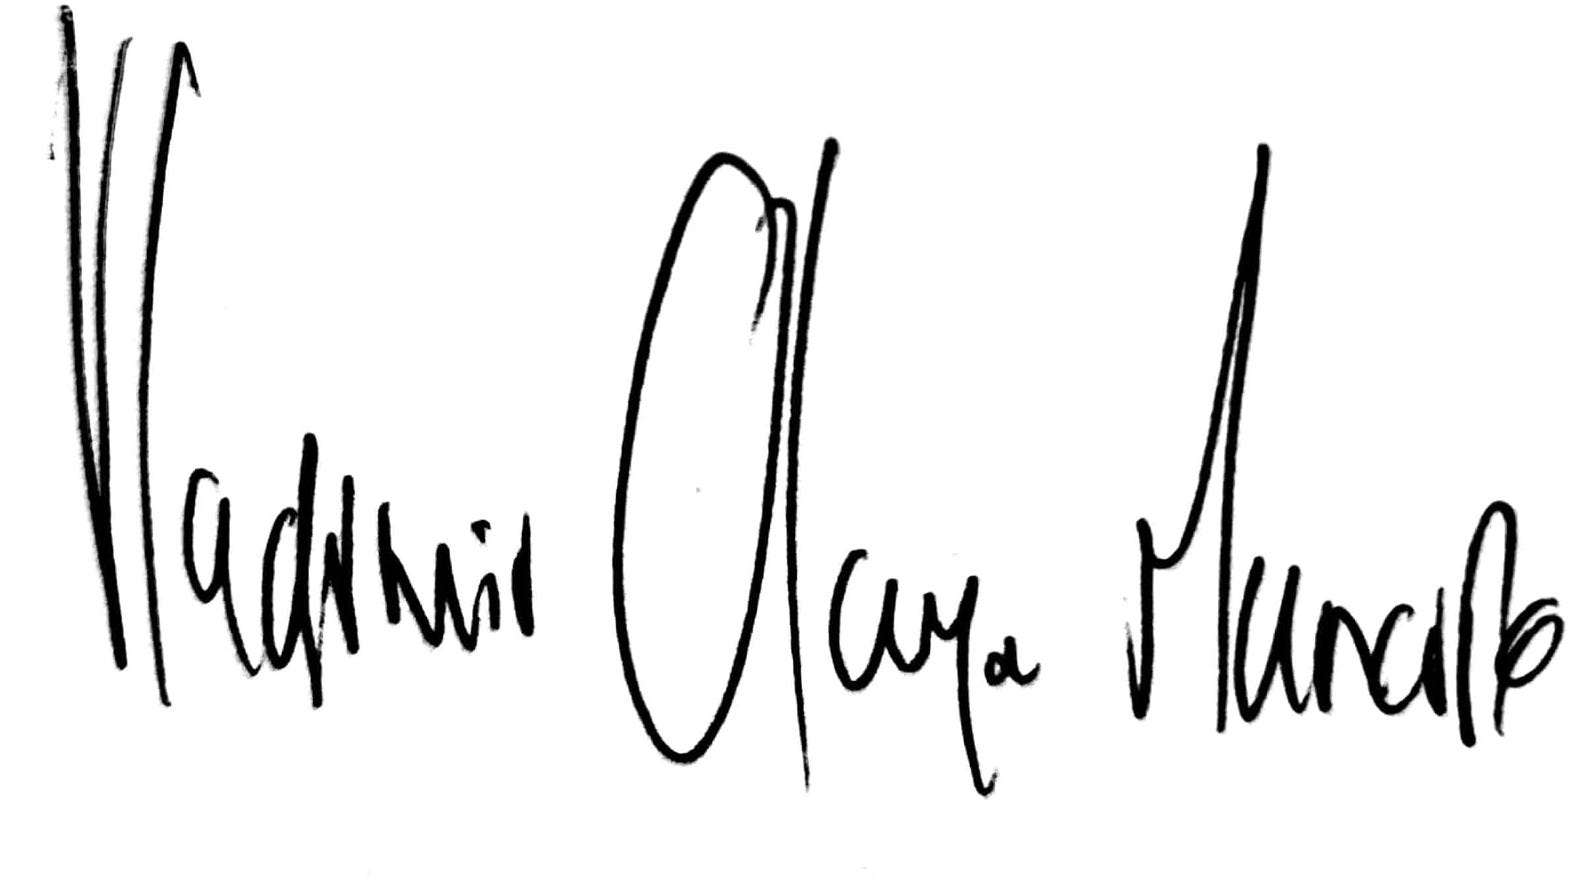 Vladimir Olaya Mancilla